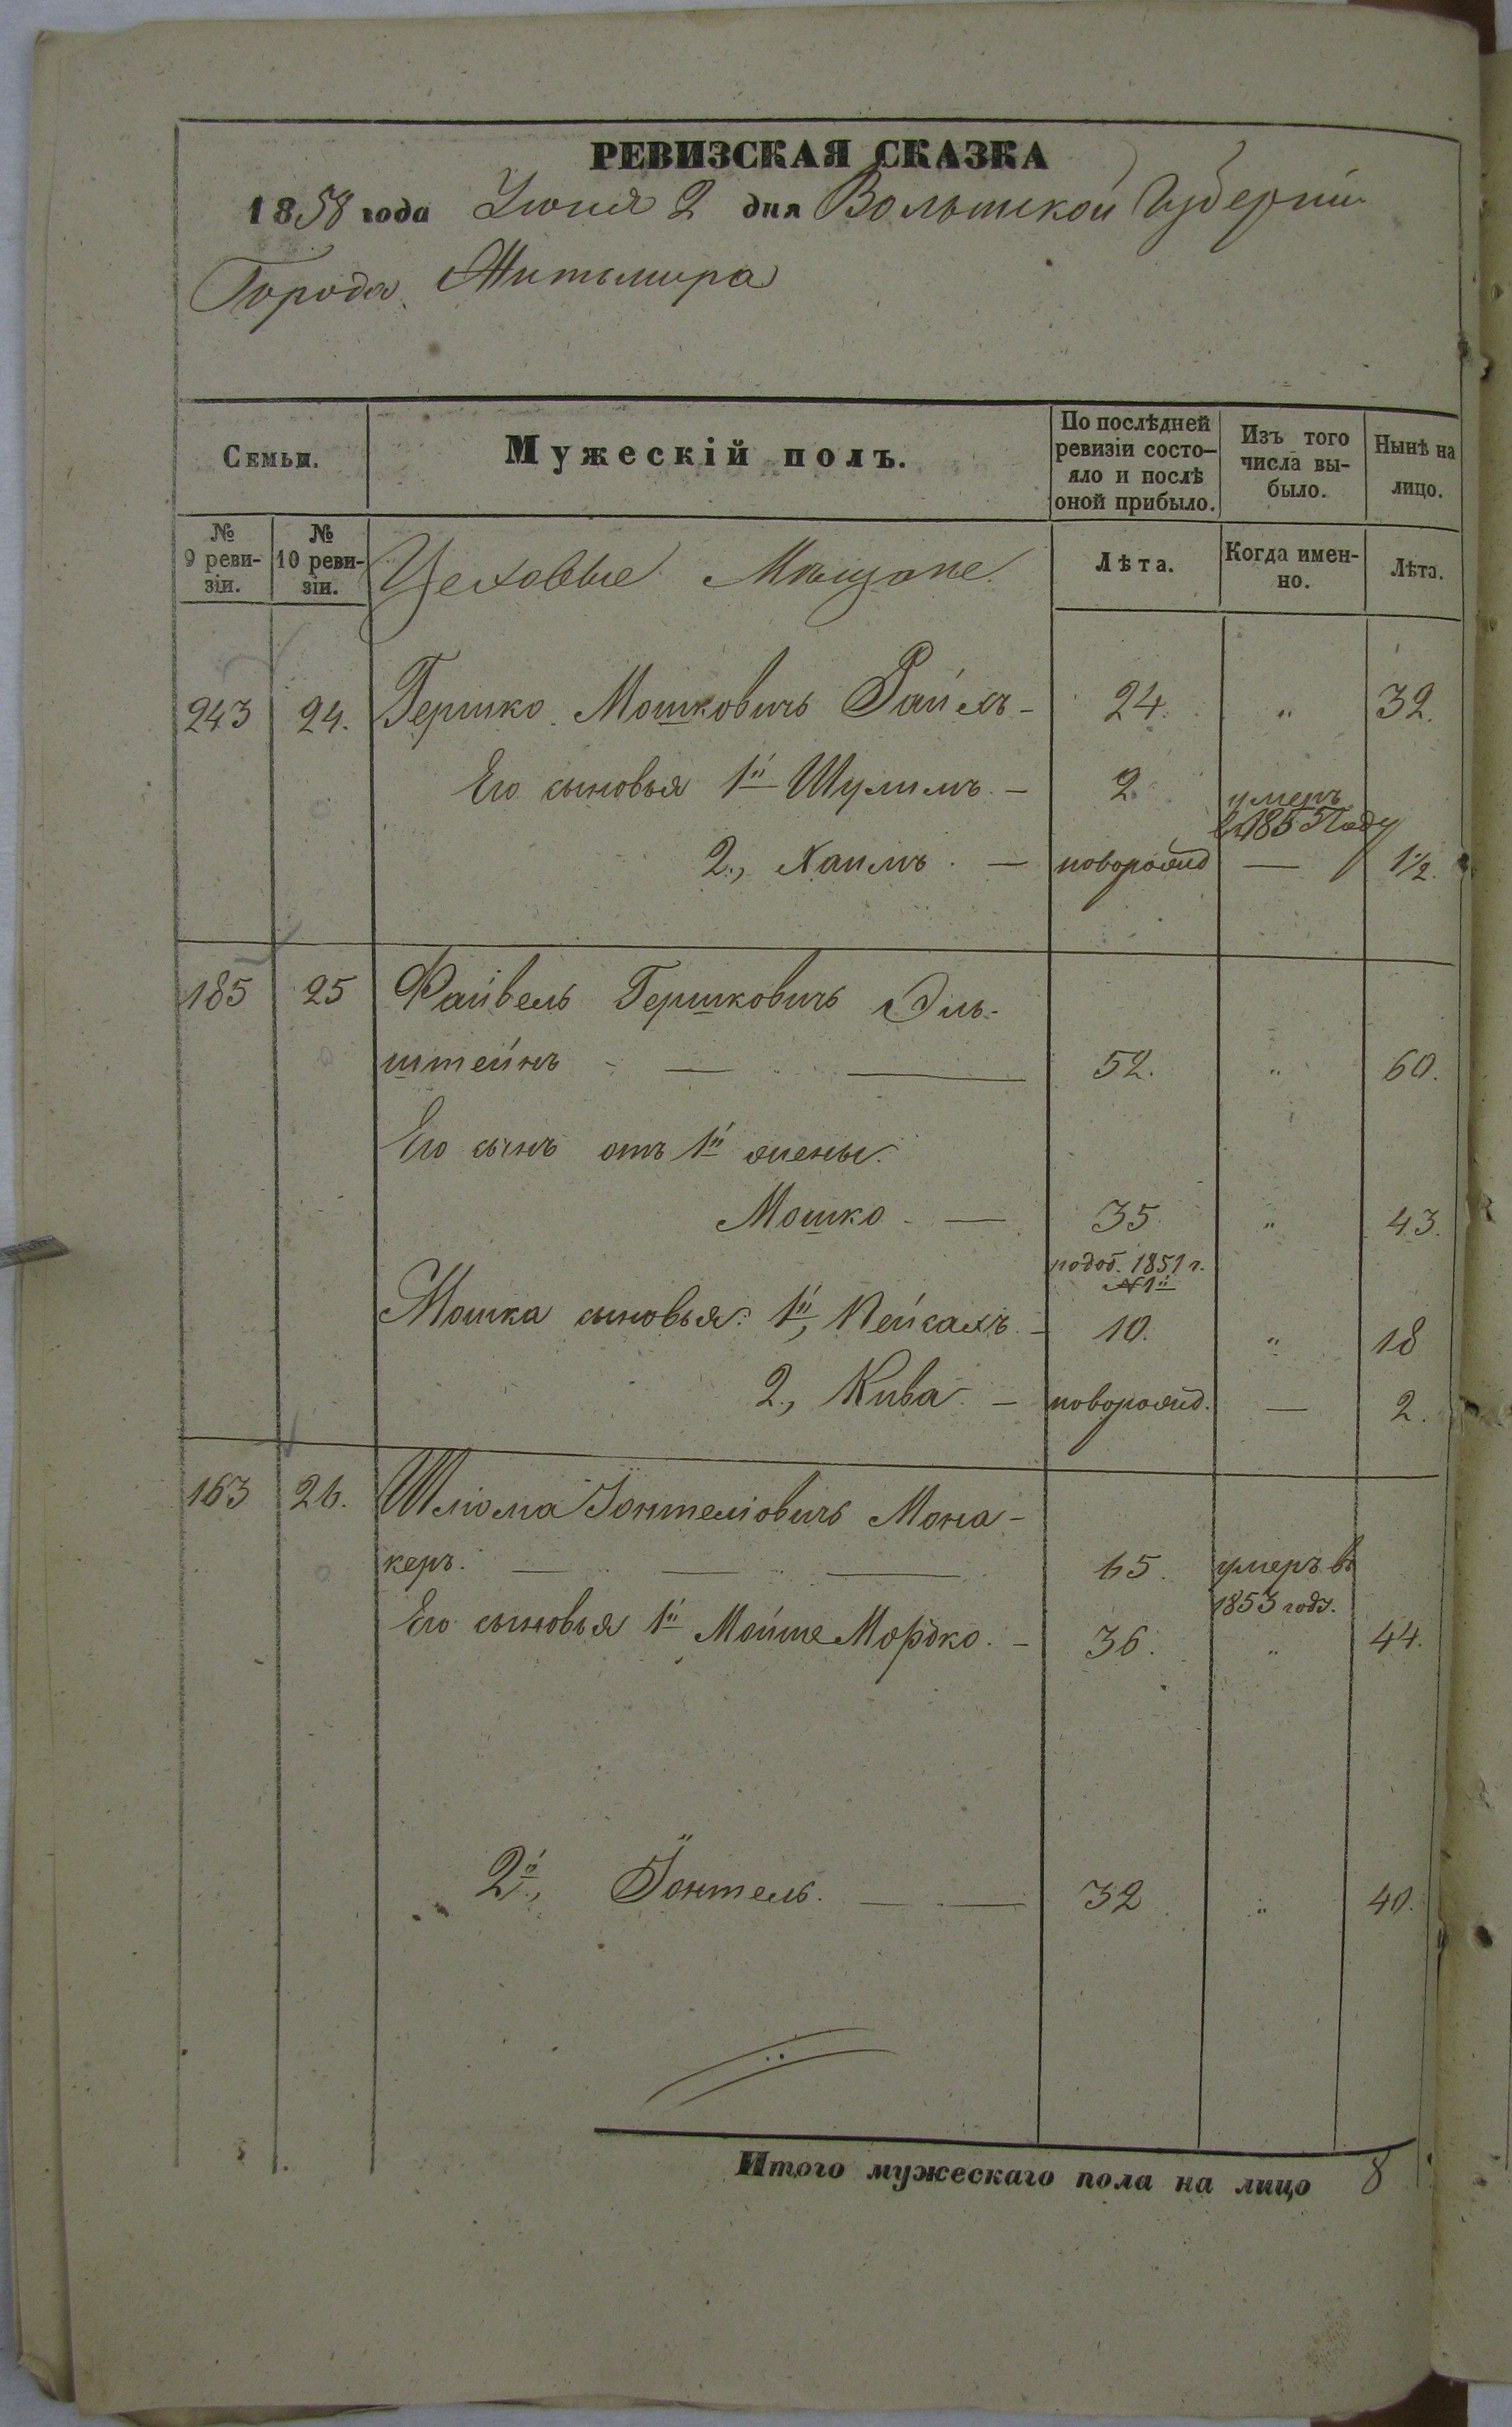 РЕВИЗСКАЯ СКАЗКА
1858 года Іюня 2 дня Волынской Губерніи
Города Житоміра
Семьи. Мужескій полъ. По послѣдней ревизіи состояло и послѣ оной прибыло. Изъ того числа выбыло. Нынѣ на лицо.
№ 9 ревизіи. № 10 ревизіи. Цеховые Мѣщане Лѣта. Когда именно. Лѣта.
243 24. Гершко Мошковичъ Райхъ - 24. " 32.
Его сыновья 1й Шулимъ - 2 умеръ в 1855 году
2., Хаимъ. — новорожд — 1½.
185 25 Файвель Гершковичъ Эль-
штейнъ - — — 52. " 60.
Его сынъ отъ 1й жены:
Мошко - — 35 " 43.
подоб. 1851 г.
№1й
Мошка сыновья: 1й, Пейсахъ - 10. " 18
2., Кива - новорожд. — 2.
163 26. Шліома Іонтеліовичъ Мона-
керъ. — — — 65. умеръ въ
1853 году.
Его сыновья 1й Мойше Мордко. - 36. " 44.
2й, Іонтель. — — 32 " 40.
Итого мужескаго пола на лицо 8